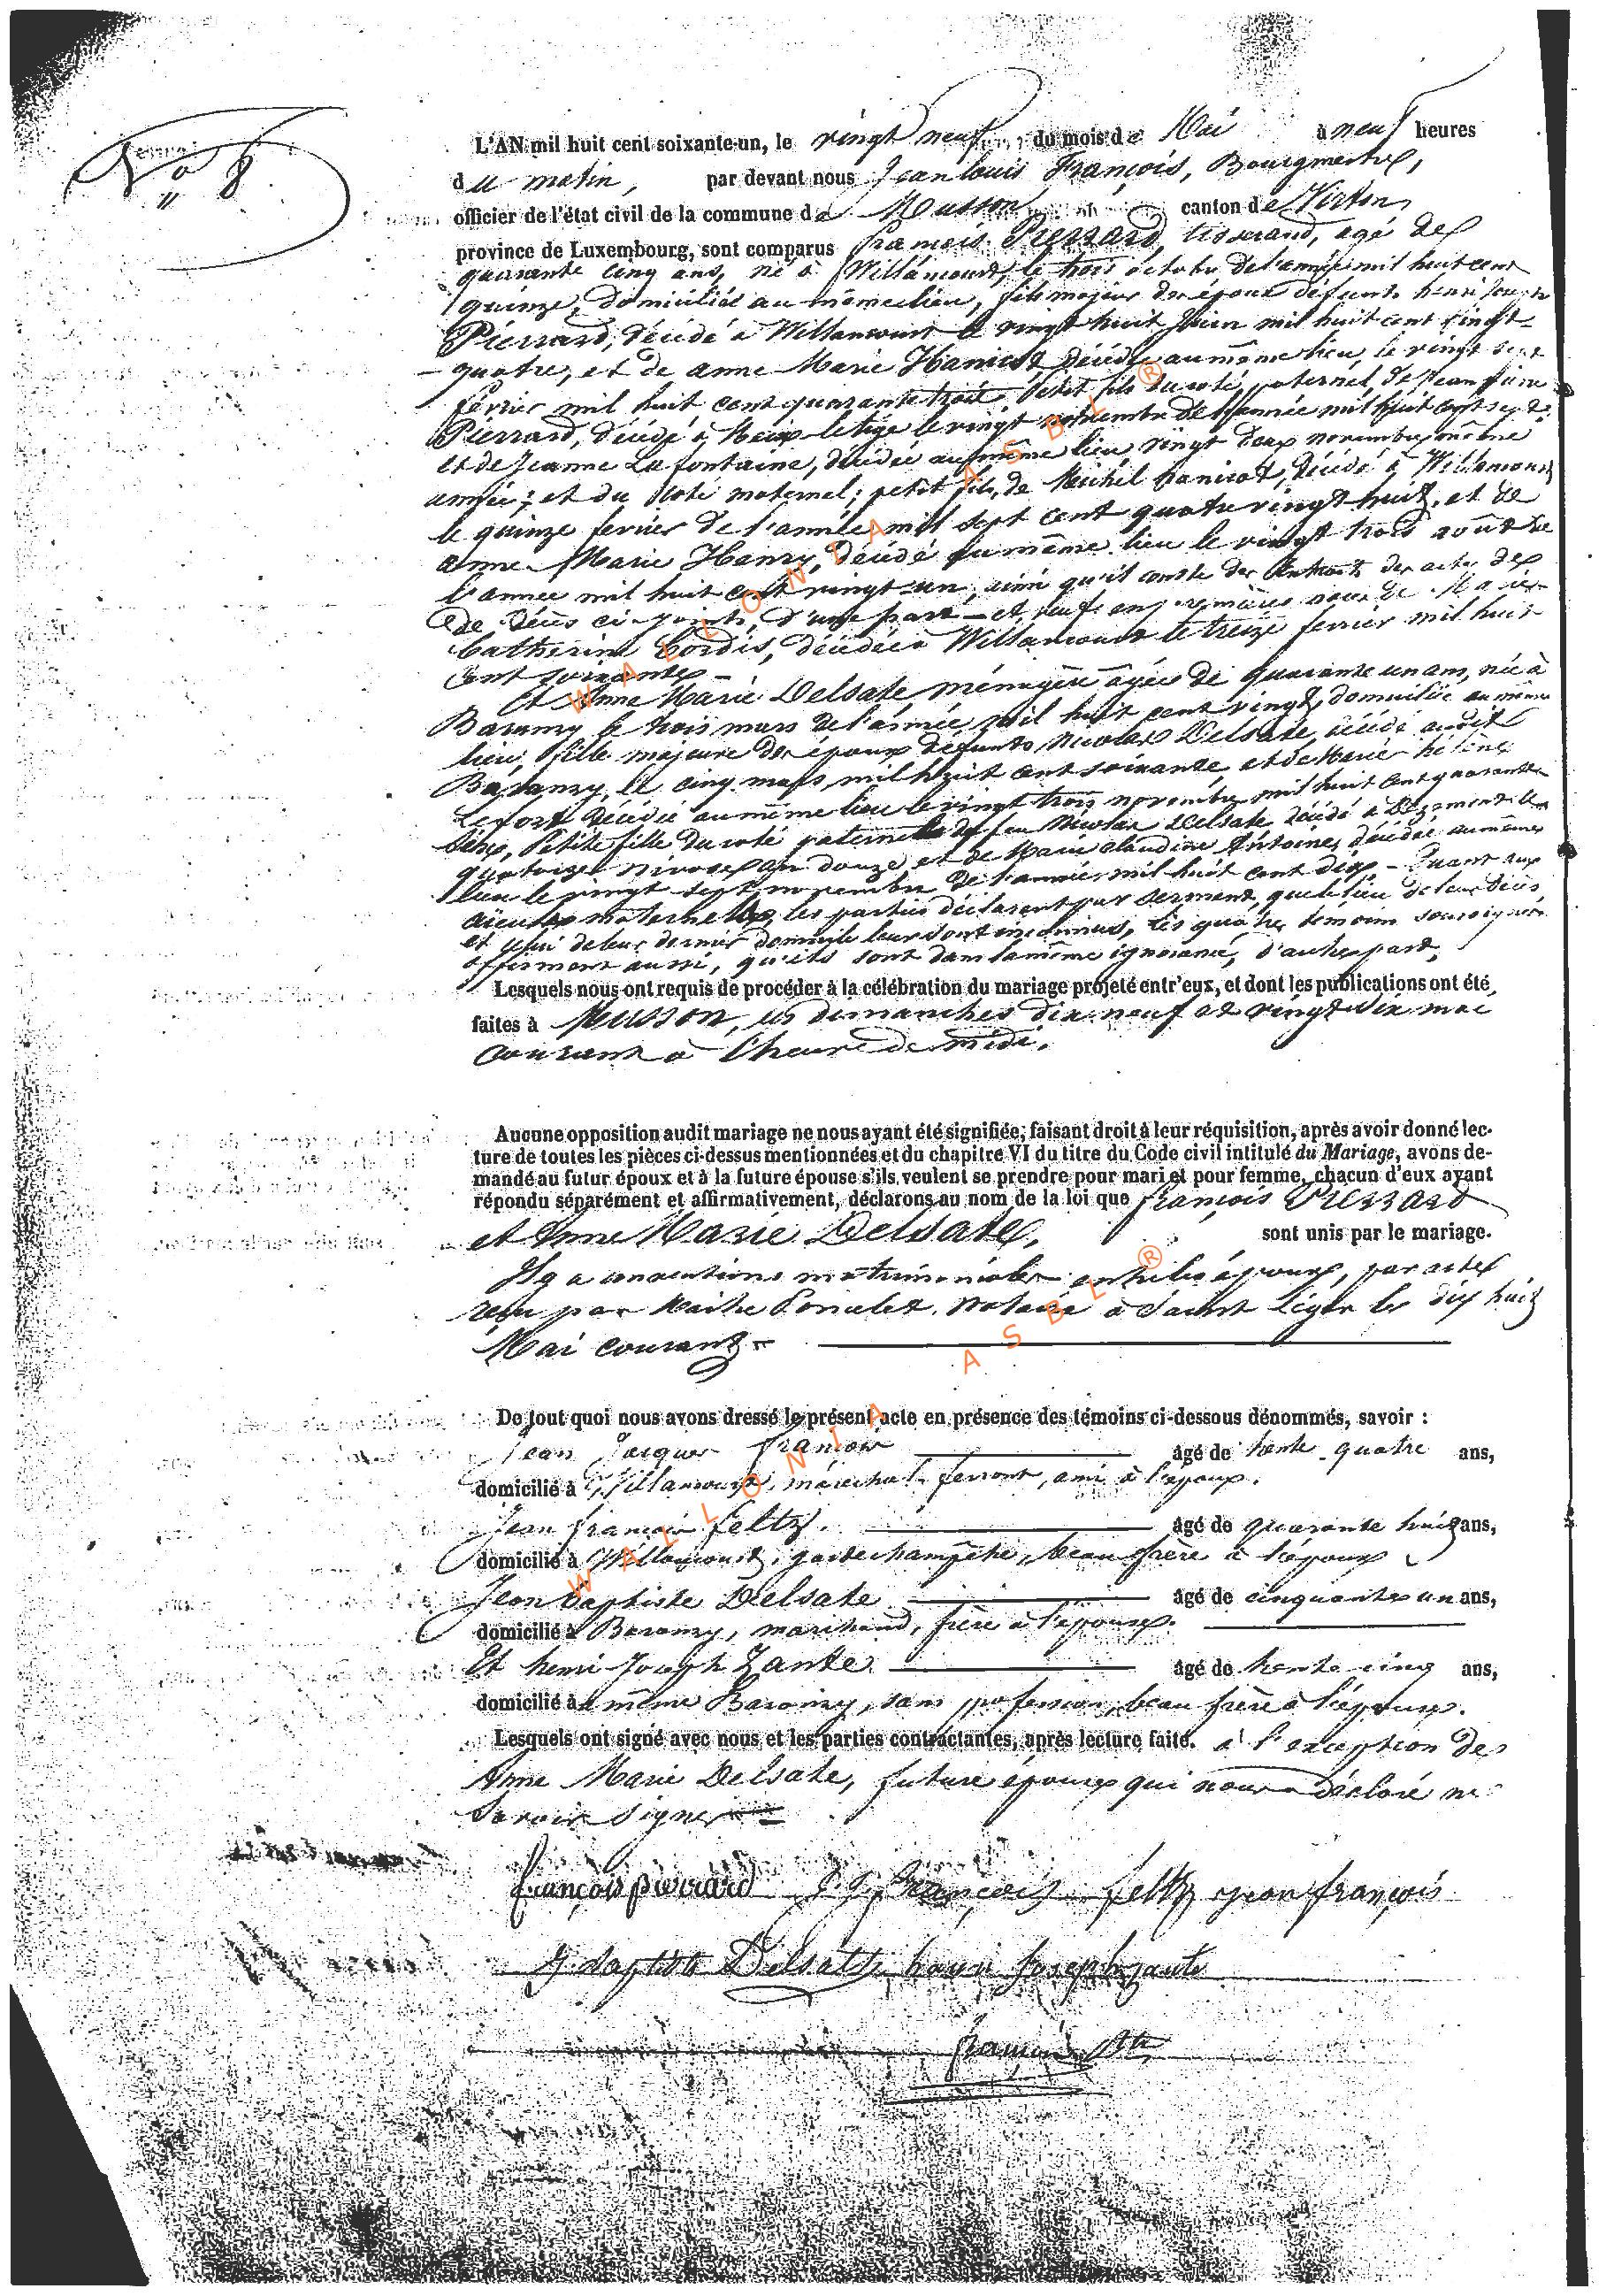 N° 8
L'AN mil huit cent soixante-un, le vingt neuf du mois de Mai à neuf heures
du matin, par devant nous Jean louis François, Bourgmestre,
officier de l'état civil de la commune de Musson canton de Virton
province de Luxembourg, sont comparus françois Pierrard, tisserand, agé de
quarante cinq ans, né à Willancourt, le trois octobre de l'année mil huit cent
quinze, domicilié au même lieu, fils majeur des époux défunts henri joseph
Pierrard, décédé à Willancourt le vingt huit juin mil huit cent vingt
quatre, et de anne Marie Hanicot, décédée au même lieu, le vingt sept
février mil huit cent quarante trois. Petit fils du coté paternel, de Jean pierre
Pierrard, décédé à Meix-le-tige le vingt novembre de l'année mil huit cent sept
et de Jeanne Lafontaine, décédée au même lieu, vingt deux novembre même
année; et du coté maternel; petit fils de Michel hanicot, décédé à Willancourt
le quinze fevrier de l'année mil sept cent quatre vingt huit, et de
anne Marie Hanry, décédé au même lieu le vingt trois août de
l'année mil huit cent vingt-un, ainsi qu'il conste des Extraits des actes de
de décès ci-joints, d'une part – et veuf en premières noces de Marie
Catherine Cordis, décédée à Willancourt le treize fevrier mil huit
cent soixante –
Et Anne Marie Delsate ménagère âgée de quarante un ans, née à
Baranzy le trois mars de l'année mil huit cent vingt, domiciliée au même
lieu, fille majeure des époux défunts Nicolas Delsate, décédé audit
Baranzy, le cinq mars mil huit cent soixante, et de Marie hélène
Lefort décédée au même lieu le vingt trois novembre mil huit cent quarante
Petite fille du coté paternelle de feu Nicolas Delsate décédé à
quatorze nivose an douze et de Marie claudine Antoine, décédée au même
lieu le vingt sept novembre de l'année mil huit cent dix – Quant aux
aïeules maternelles, les parties déclarent par serment, que le lieu de leur décès
et celui de leur dernier domicile leur sont inconnus, les quatre témoins soussignés
affirment aussi, qu'ils sont dans la même ignorance, d'autre part,
Lesquels nous ont requis de procéder à la célébration du mariage projeté entr'eux, et dont les publications ont été
faites à Musson, les dimanches dix-neuf et vingt six mai
courant à l'heure de midi.
Aucune opposition audit mariage ne nous ayant été signifiée, faisant droit à leur réquisition, après avoir donné lec-
ture de toutes les pièces ci-dessus mentionnées et du chapitre VI du titre du Code civil intitulé du Mariage, avons de-
mandé au futur époux et à la future épouse s'ils veulent se prendre pour mari et pour femme, chacun d'eux ayant
répondu séparément et affirmativement, déclarons au nom de la loi que françois Pierrard
et Anne Marie Delsate, sont unis par le mariage.
Il y a conventions matrimoniales entre les époux, par acte
reçu par Maître notaire à Saint Léger le dix huit
Mai courant –
De tout quoi nous avons dressé le présent acte en présence des témoins ci-dessous dénommés, savoir :
Jean Jacques François âgé de trente-quatre ans,
domicilié à Willancourt, maréchal-ferrant, ami à l'époux.
Jean françois feltz. âgé de quarante huit ans,
domicilié à Willancourt, garde champêtre, beau frère à l'époux
Jean baptiste Delsate âgé de cinquante un ans,
domicilié à Baranzy, marchand, frère à l'épouse.
Et henri Joseph Zante âgé de trente-cinq ans,
domicilié à même Baranzy, sans profession, beau frère à l'épouse.
Lesquels ont signé avec nous et les parties contractantes, après lecture faite. a l'exception de
Anne Marie Delsate, future épouse qui nous a déclaré ne
savoir signer
françois pierrard J J françois feltz jean françois
J. baptiste Delsatte henri Joseph zante
françois
WALLONIA ASBL ®
WALLONIA ASBL ®